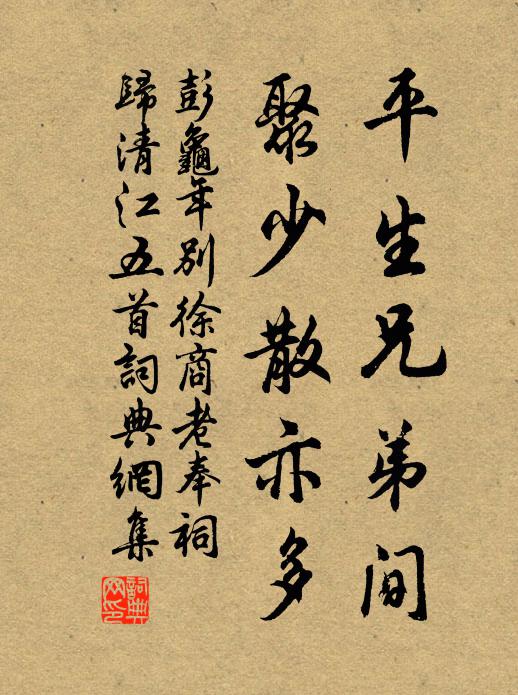 平生兄弟間
聚少散亦多
彭龜年別徐商老奉祠
歸清江五首詞典網集
詞典
网印